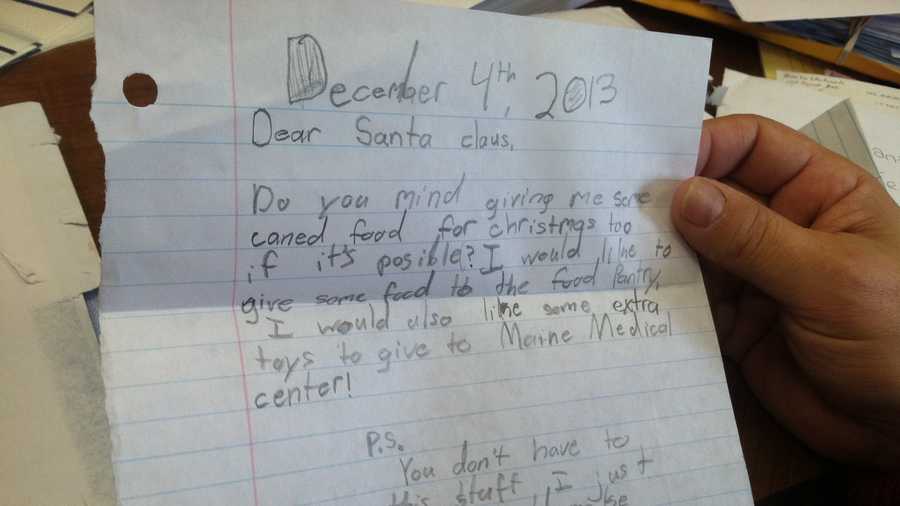 December 4th, 2013
Dear Santa claus,
Do you mind giving me some
caned food for christmas too
if it's posible? I would like to
give some food to the food Pantry,
I would also like some extra
toys to give to Maine Medical
center!
P.S.
You don't have to
this stuff I just